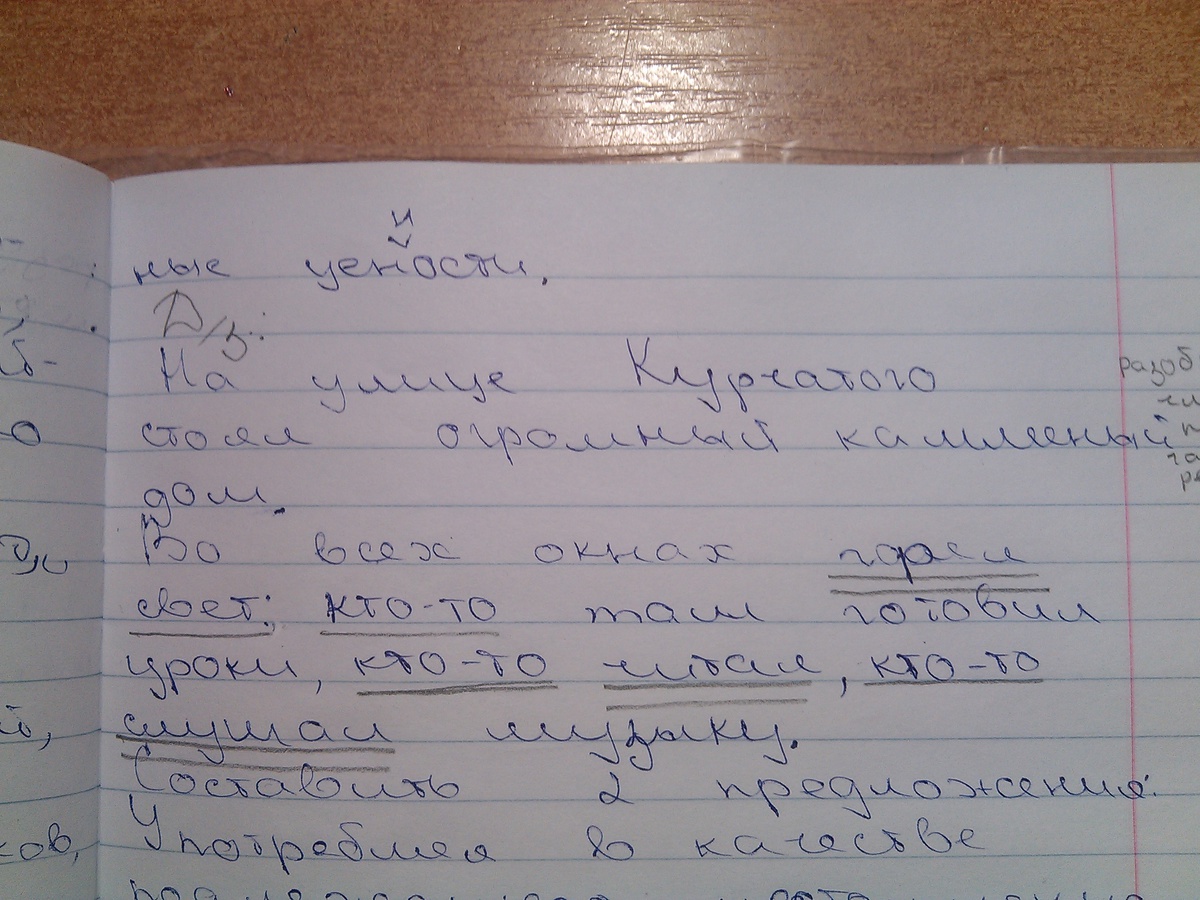 и
ные цености.
Д/з:
На улице Курчатого
стоял огромный камменый
дом.
Во всех окнах горел
свет: кто-то там готовил
уроки, кто-то читал, кто-то
слушал музыку.
Составить 2 предложения:
Употребляя в качестве
разоб
ков,